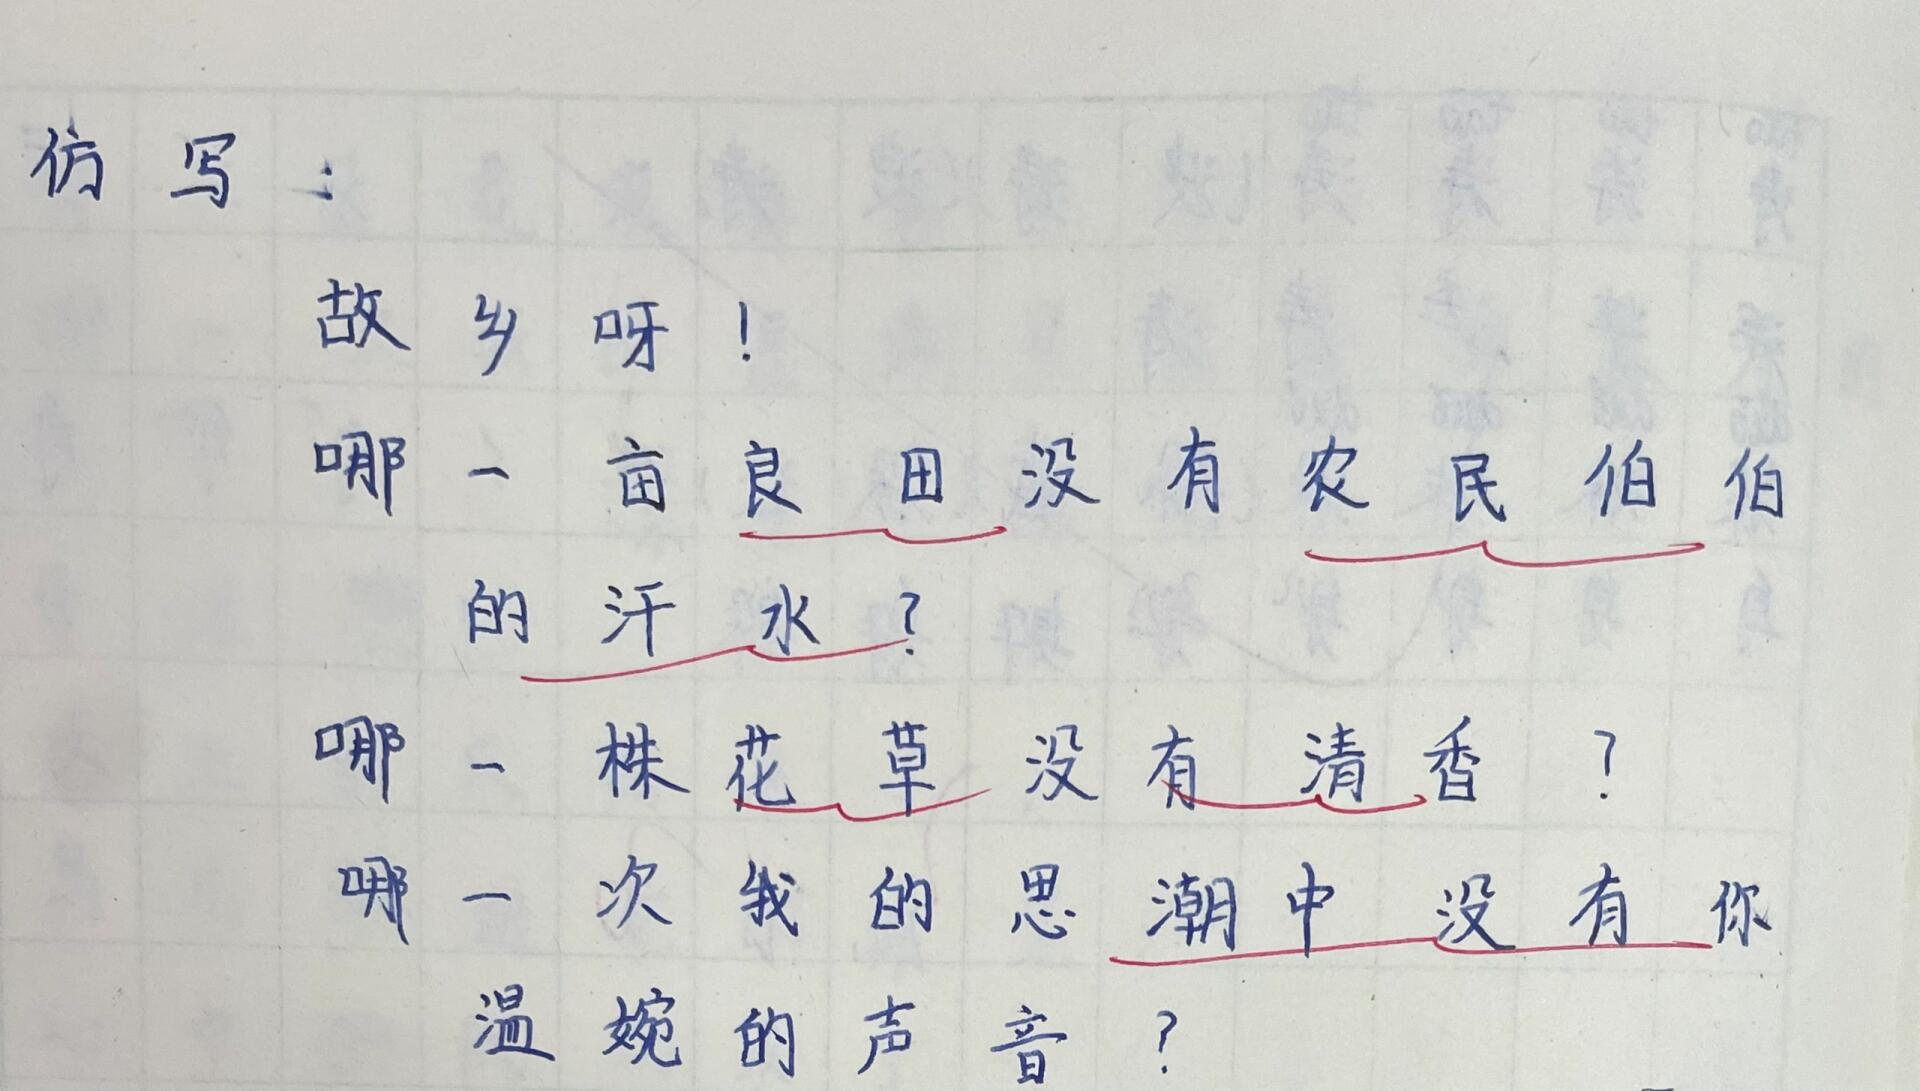 仿写：
故乡呀！
哪一亩良田没有农民伯伯
的汗水？
哪一株花草没有清香？
哪一次我的思潮中没有你
温婉的声音？